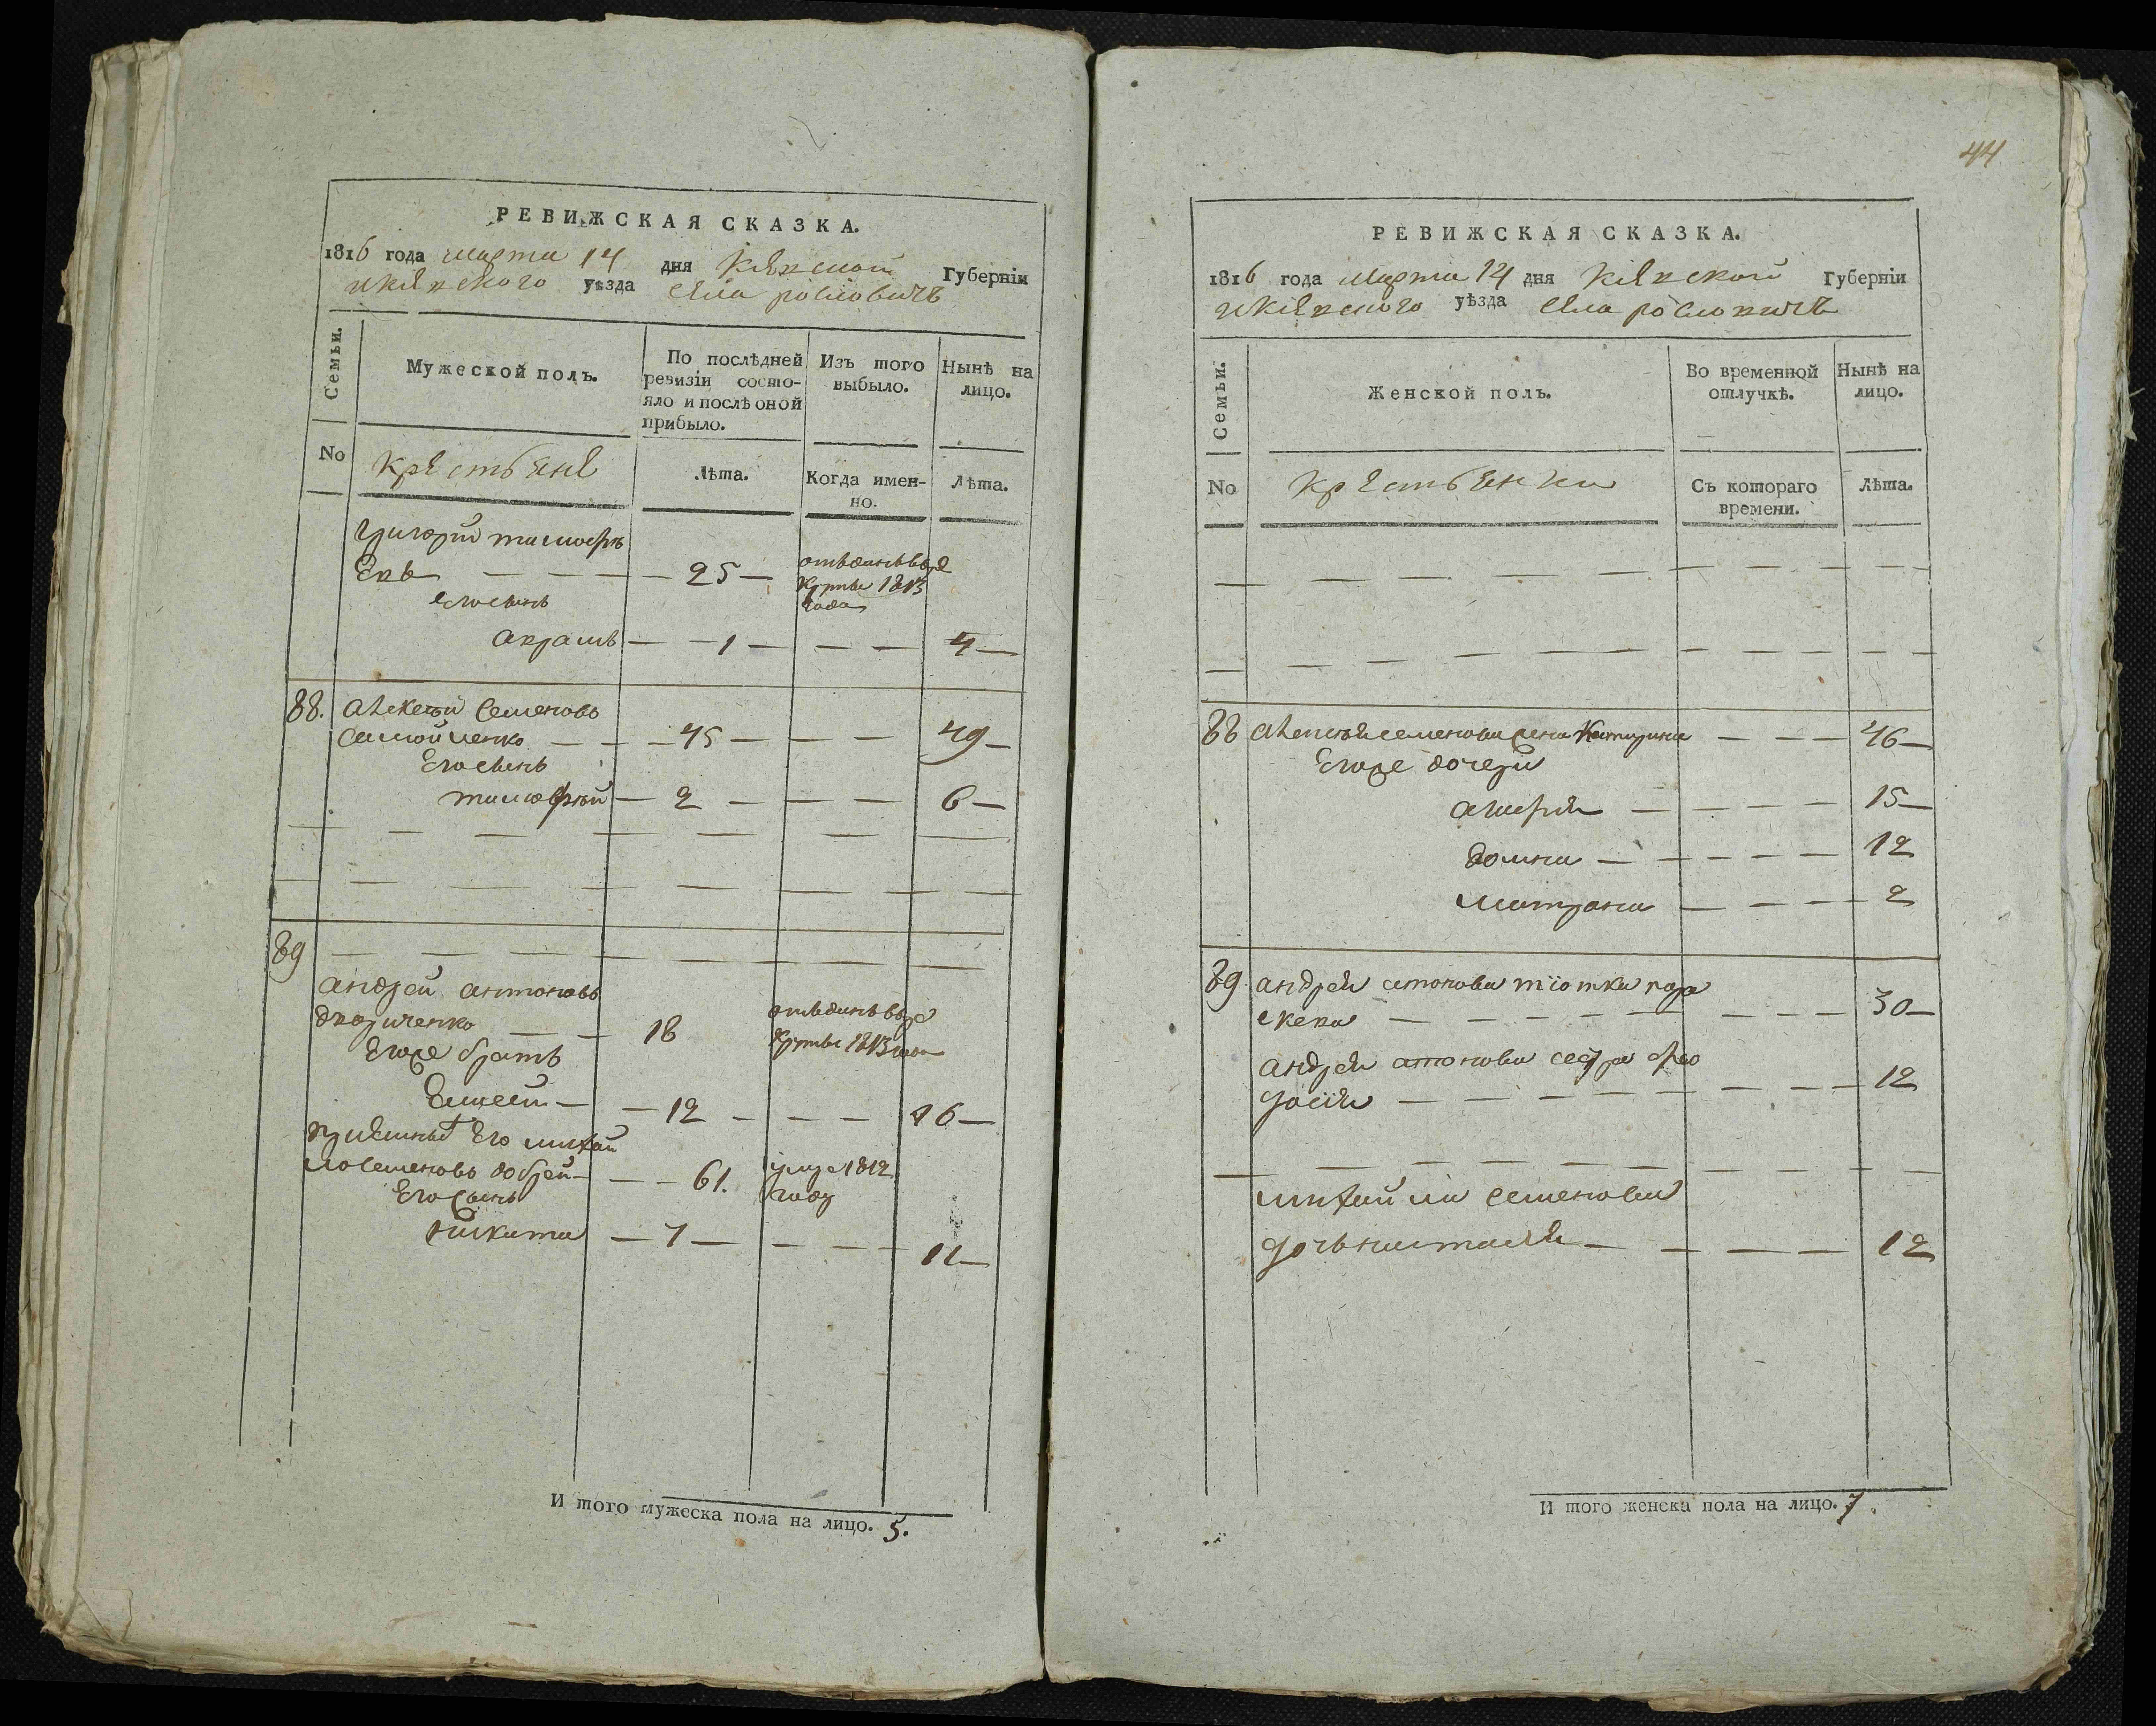 РЕВИЖСКАЯ СКАЗКА.
1816 года марта 14 дня Кіевской Губерніи
икіевского уѣзда села рославичъ
Семьи.
Мужеской полъ.
По послѣдней ревизіи состо-
яло и послѣ оной
прибыло.
Изъ того
выбыло.
Нынѣ на
лицо.
No
крестьяне
Лѣта.
Когда имен-
но.
Лѣта.
григорій тимофѣ
евъ — — — 25 —
его сынъ
аврамъ — — 1 — — — 4 —
88. алексѣй семеновъ
самойленко — — 45 — — — 49 —
его сынъ
тимофѣй — 2 — — — 6 —
89
андрей антоновъ
— — 18
егоже братъ
елисей — — 12 — — — 16 —
его михай
ло семеновъ — — 61. умре 1812
году
его сынъ
никита — 7 — — — 11 —
И того мужеска пола на лицо. 5.
44
РЕВИЖСКАЯ СКАЗКА.
1816 года марта 14 дня Кіевской Губерніи
икіевского уѣзда села рославичъ
Семьи.
Женской полъ.
Во временной
отлучкѣ.
Нынѣ на
лицо.
No
крестьянки
Съ котораго
времени.
Лѣта.
88 алексѣя семенова жена катерина — — — 46 —
егоже дочери
— — — — 15 —
домна — — — — 12
матрона — — — — 2
89 андрея антонова тіотка пара
скева — — — 30 —
андрея антонова сестра фео
досія — — — 12
михайла семенова
дочь настасія — — — 12
И того женска пола на лицо. 7.